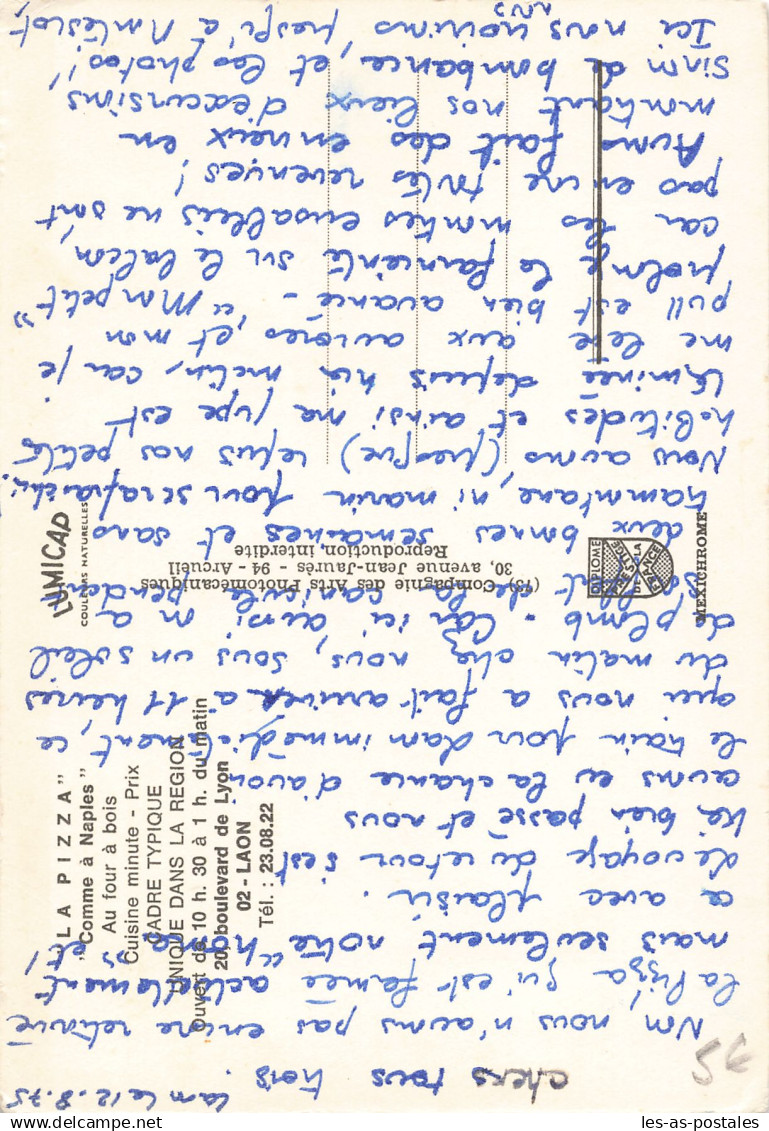 Laon le 12.8.75
Chers tous trois.
Non, nous n'avons pas encore retrouvé
la Pizza qu'est fermée actuellement
mais seulement notre "home" et
ce avec plaisir.
de voyage du retour s'est
bien passé et nous
avons eu la chance d'avoir
le train pour Laon immédiatement, ce
qui nous a fait arriver à 11 heures
du matin chez nous, sous un soleil
de plomb - Car ici aussi on a
de la canicule pendant
deux bonnes semaines et sans
tramontane, ni marin pour se rafraichir.
Nous avons (presque) repris nos petites
habitudes et ainsi ma jupe est
terminée depuis hier matin, car je
me lève aux aurores, et mon
pull est bien avancé - "Mon petit"
prolonge la farniente sur le balcon,
car les montres ensablées ne sont
pas encore toutes revenues!
Avons fait des envieux en
montrant nos lieux d'excursions
sinon de bombance, et les photos!
Ici nous nous
"LA PIZZA"
"Comme à Naples"
Au four à bois
Cuisine minute - Prix
CADRE TYPIQUE
UNIQUE DANS LA REGION
Ouvert de 10 h. 30 à 1 h. du matin
20, boulevard de Lyon
02 - LAON
Tél. : 23.08.22
LUMICAP
COULEURS NATURELLES
(73) Compagnie des Arts Photomécaniques
30, avenue Jean-Jaurès - 94 - Arcueil
Reproduction interdite
DIPLOME
PRESTIGE
DE LA
FRANCE
MEXICHROME
5€
les-as-postales